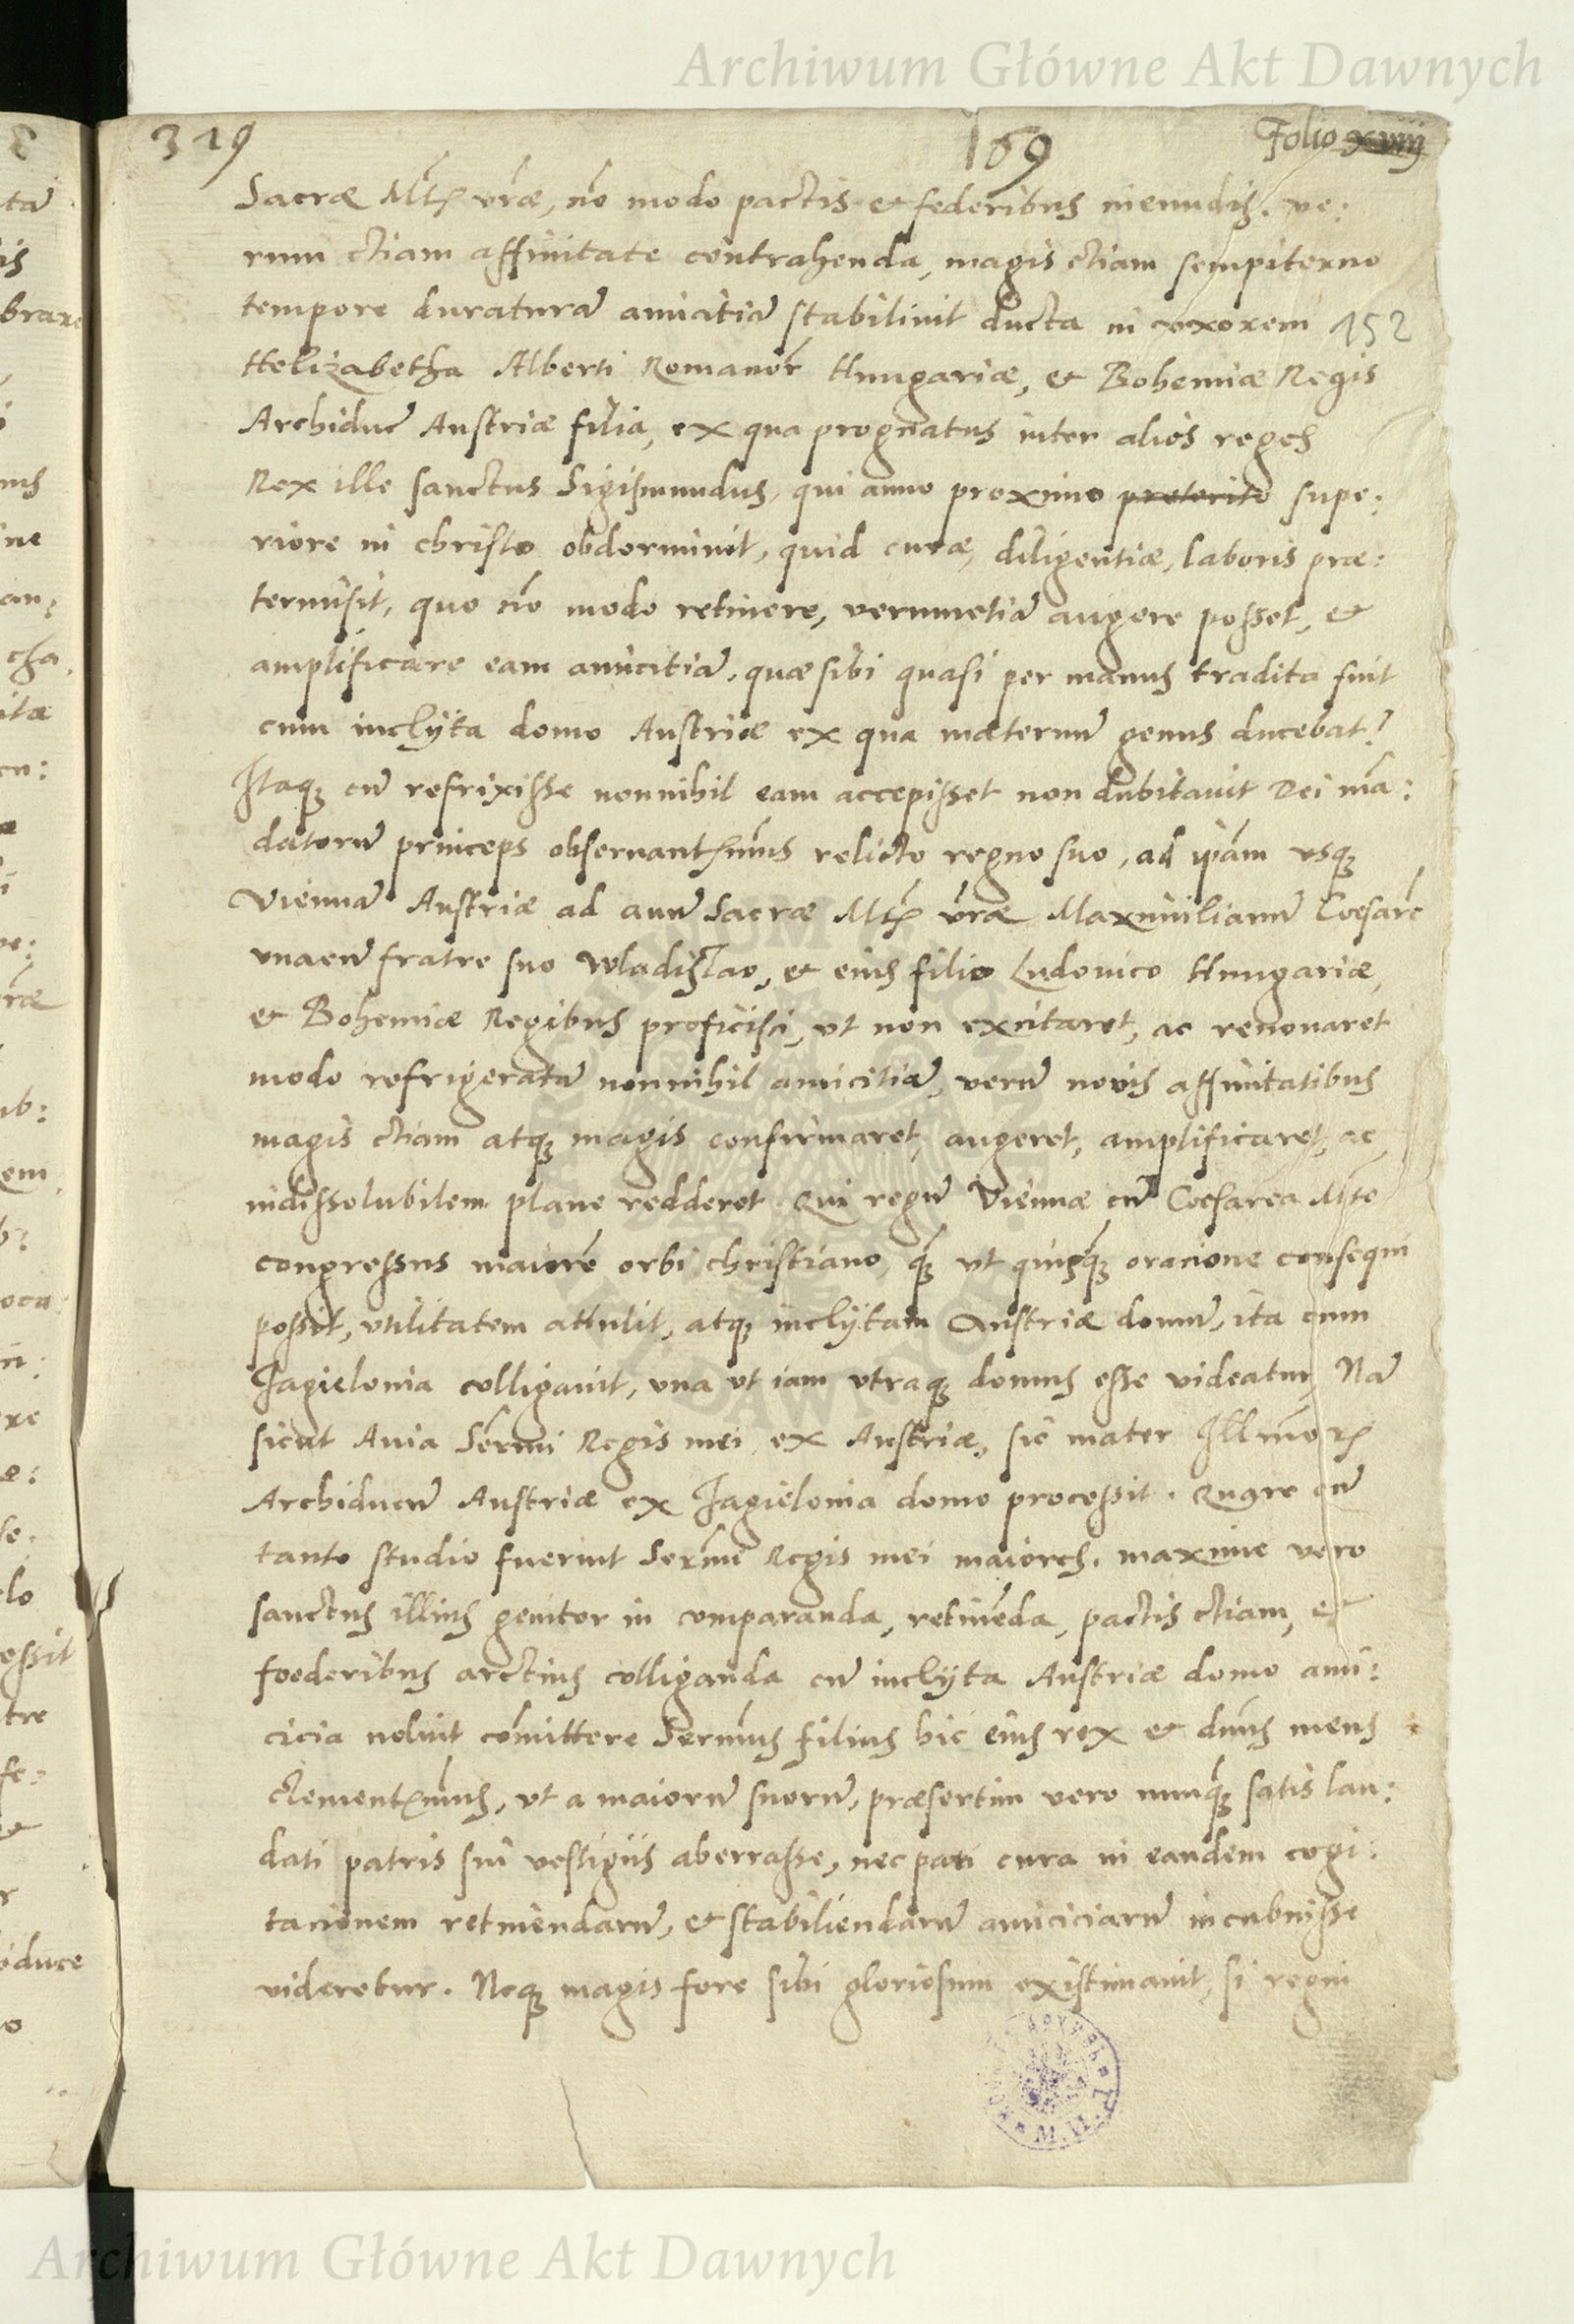 Archiwum Główne Akt Dawnych
319
169
Folio xviij
Sacræ Mtis vræ, nō modo pactis et federibus ineundis. ve:
rum etiam affinitate contrahenda, magis etiam sempiterno
tempore duraturā amicitiā stabilivit ducta in uxorem
152
Helizabetha Alberti Romanor Hungariæ, et Bohemiæ Regis
Archiducū Austriæ filia, ex qua prognatus inter alios reges
Rex ille sanctus Sigismundus, qui anno proximo preterito supe:
riore in christo obdormivit, quid curæ, diligentiæ, laboris præ:
termisit, quo nō modo retinere, verumetiā augere posset, et
amplificare eam amicitiā, quæ sibi quasi per manus tradita fuit
cum inclÿta domo Austriæ ex qua maternū genus ducebat?
Itaq; cū refrixisse nonnihil eam accepisset non dubitavit Dei mā:
datorū princeps observantissimus relicto regno suo, ad ipām usq;
Viennā Austriæ ad avū Sacræ Mtis vræ Maximilianū Coesarē
unacū fratre suo Wladislao, et eius filio Ludovico Hungariæ,
et Bohemiæ Regibus proficisci, ut non excitaret, ac renovaret
modo refrigeratā nonnihil amicitiā, verū novis affinitatibus
magis etiam atq; magis confirmaret, augeret, amplificaret, ac
indissolubilem plane redderet. Qui regū Viennæ cū Coesarea Mte
congressus maiorē orbi christiano, q̄; ut quisq̄; oracione consequi
possit, utilitatem attulit, atq; inclÿtam Austriæ domū, ita cum
Jagielonia colligavit, una ut iam utraq; domus esse videatur, Nā
sicut Avia Sermi Regis mei ex Austriæ, sic mater Illmōrū
Archiducū Austriæ ex Jagielonia domo processit. Quare cū
tanto studio fuerint Sermi Regis mei maiores. maxime vero
sanctus illius genitor in comparanda, retinēda, pactis etiam, et
foederibus arctius colliganda cū inclÿta Austriæ domo ami:
cicia noluit cōmittere Sermus filius hic eius rex et dnus meus
clementissimus, ut a maiorū suorū, præsertim vero nunq̄; satis lau:
dati patris sui vestigiis aberrasse, nec pari cura in eandem cogi:
tacionem retinendarū, et stabiliendarū amiciciarū incubuisse
videretur. Neq; magis fore sibi gloriosum existimavit, si regni
Archiwum Główne Akt Dawnych